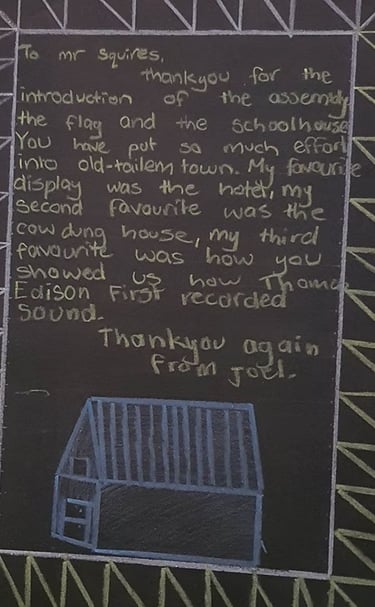 To mr squires,
thankyou for the
introduction of the assembly
the flag and the schoolhouse
You have put so much effort
into old-tailem town. My favourite
display was the hotel, my
second favourite was the
cow dung house, my third
favourite was how you
showed us how Thomas
Edison First recorded
sound.
Thankyou again
from joel.